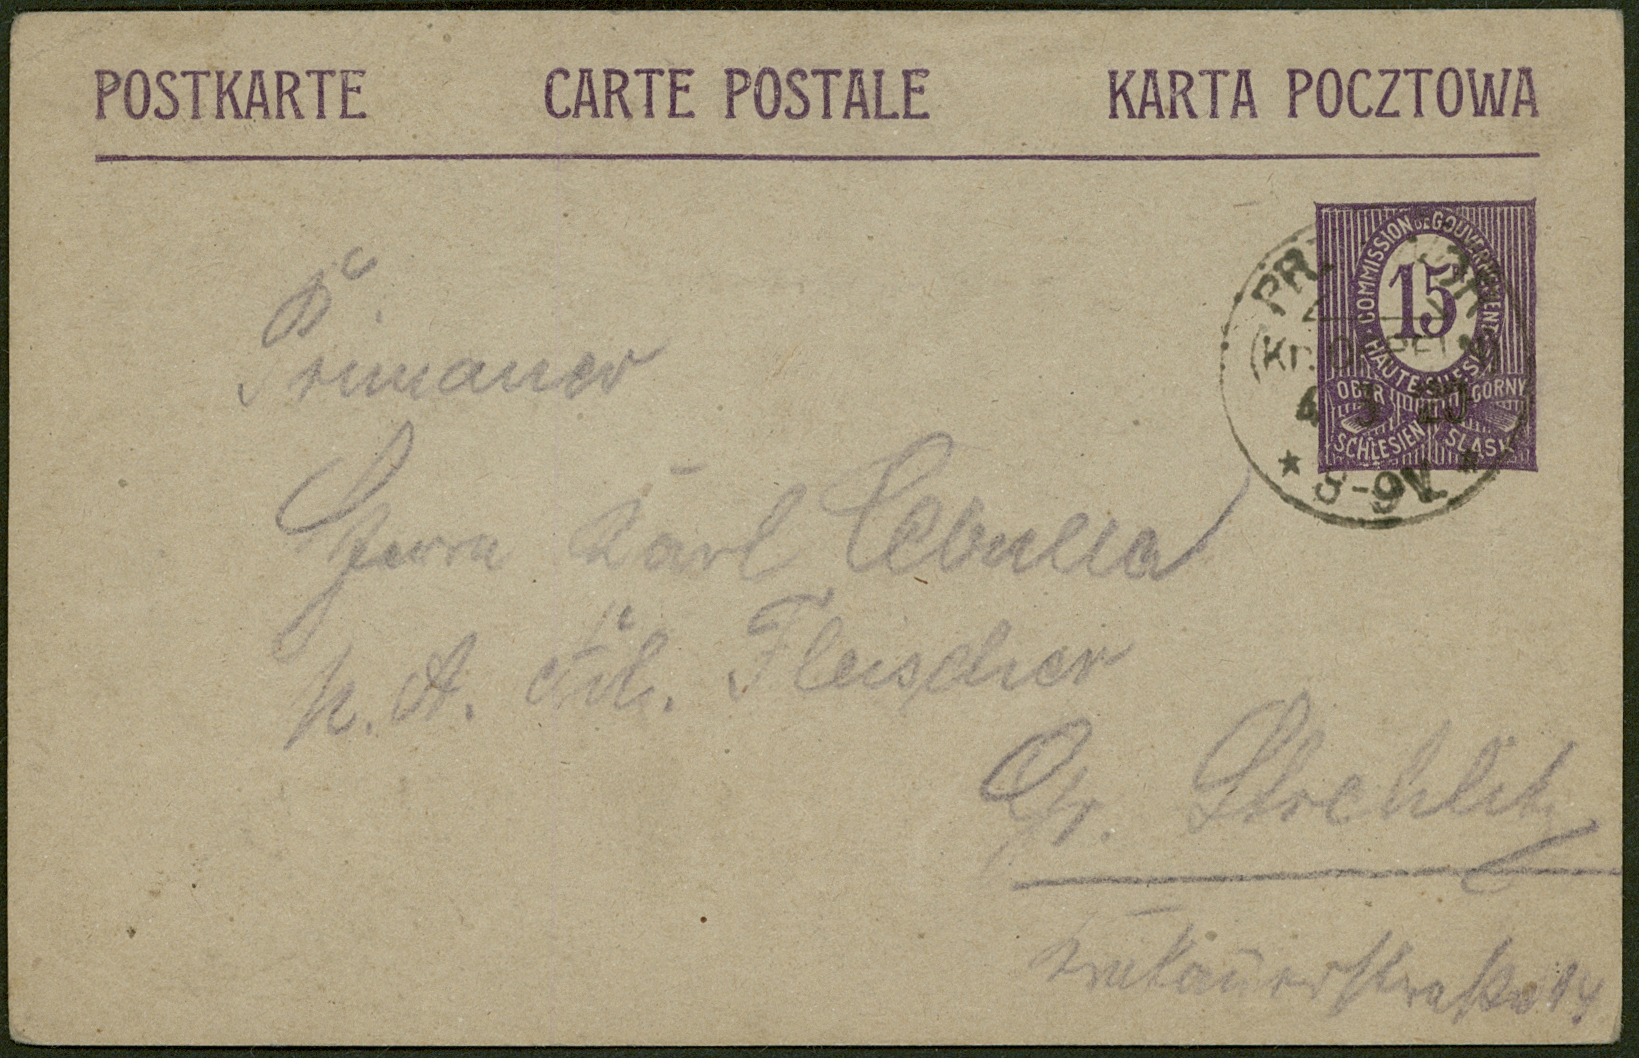 POSTKARTE CARTE POSTALE KARTA POCZTOWA
COMMISSION DE GOUVERNEMENT HAUTE SILESIE
15
OBER SCHLESIEN
GORNY SLASK
8-9V.
Primaner
Herrn Karl Cebulla
p. A. Fleischer
Gr. Strehlitz
Krakauerstraße 14